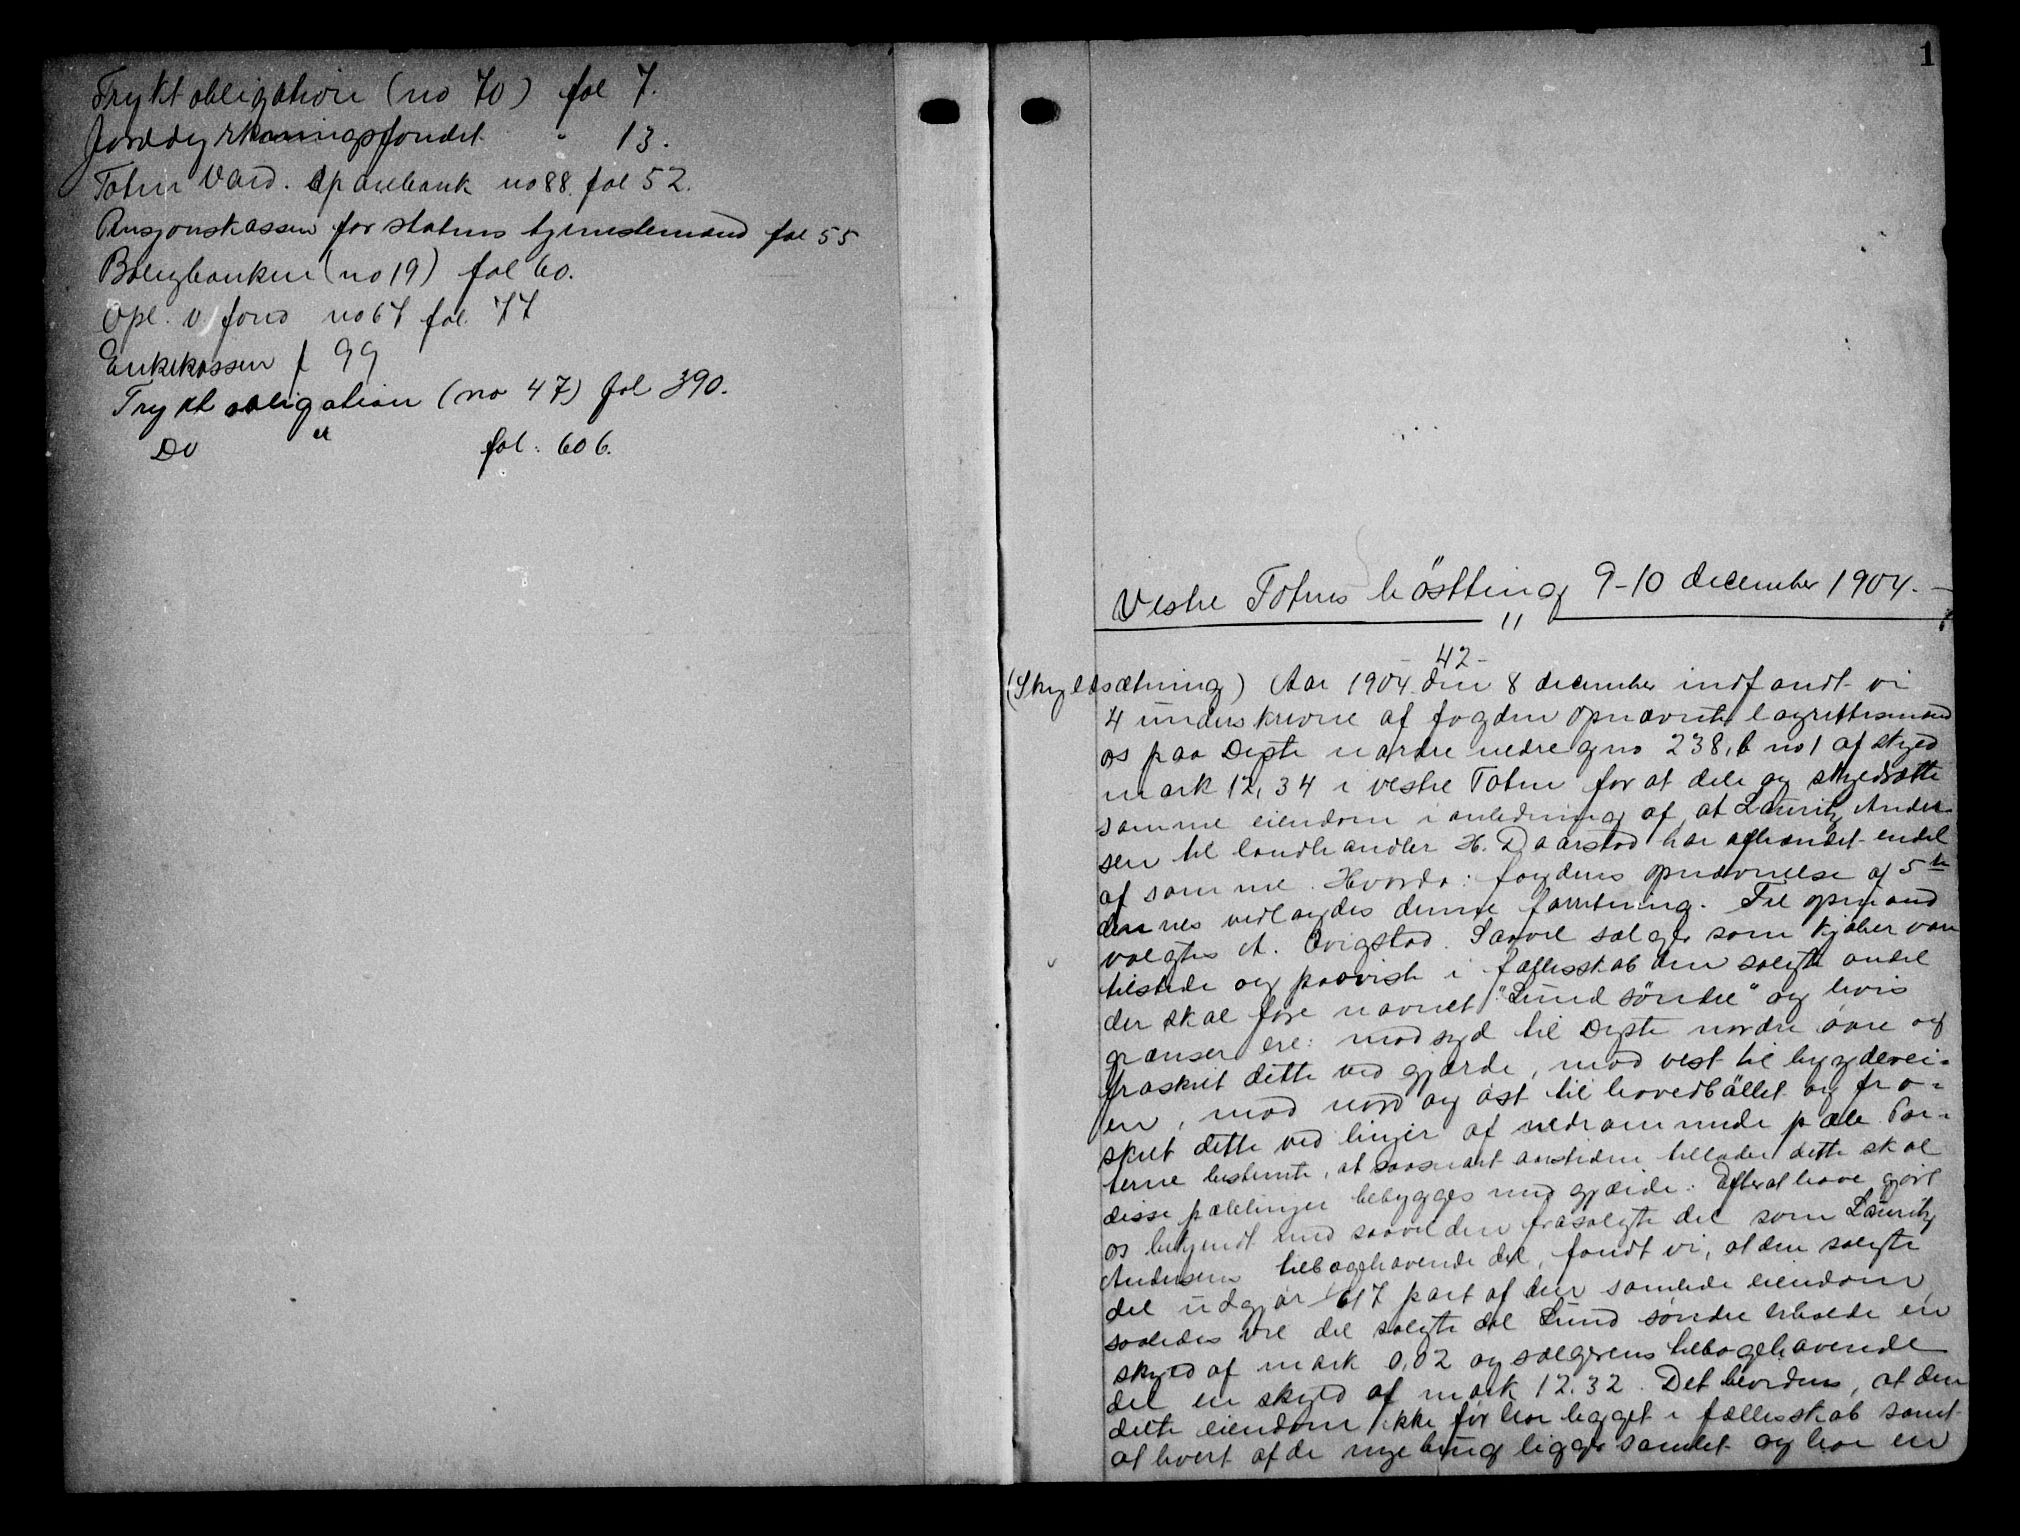 Trykt obligation (no 70) fol 7.
Jorddyrkningsfondet " 13.
Toten Vard. Sparebank no 88. fol 52.
Pensjonskassen for statens tjenestemænd fol 55
Boligbanken (no 19) fol 60.
Opl. v. fond no 67 fol. 77
Enkekassen f 99
Trykt obligation (no 47) fol 390.
Do " fol. 606.
1
Vestre Totens höstting 9-10 december 1904.
42
(Skyldsætning) Aar 1904 den 8 december indfandt vi
4 underskrevne af fogden opnævnte lagrettesmænd
os paa Dyste nordre nedre gno 238, b no 1 af skyld
mark 12,34 i vestre Toten for at dele og skyldsætte
samme eiendom i anledning af, at Lauritz Ander-
sen til landhandler H. Daarstad har afhændet endel
af samme. Hvorda: fogdens opnævnelse af 5te
dennes vedlagdes denne forretning. Til opmand
valgtes A. Evigstad. Saavel sælger som kjøber var
tilstede og paaviste i fællesskab den solgte andel
der skal føre navnet "Lund söndre" og hvis
grænser ere: mod syd til Dyste nordre øvre og
fraskilt dette ved gjærde, mod vest til bygdevei-
en, mod nord og øst til hovedbøllet og fra-
skilt dette ved linjer af nedrammede pæle. Par-
terne bestemte, at saasnart aarstiden tillader dette skal
disse pælelinjer bebygges med gjærde. Efter at have gjort
os bekjendt med saavel den frasolgte del som Lauritz
Andersens tilbagehavende del, fandt vi, at den solgte
del udgjør 1/617 part af den samlede eiendom,
saaledes vil det solgte del Lund søndre erholde en
skyld af mark 0,02 og sælgerens tilbagehavende
del en skyld af mark 12.32. Det bevidnes, at den
delte eiendom ikke før har ligget i fællesskab samt
at hvert af de nye brug ligger samlet og har en